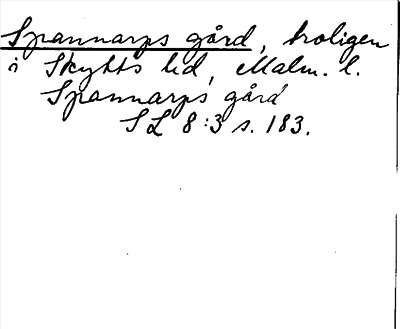 Spannarps gård, troligen
i Skytts hd, Malm. l.
Spannarps gård
SL 8:3 s. 183.